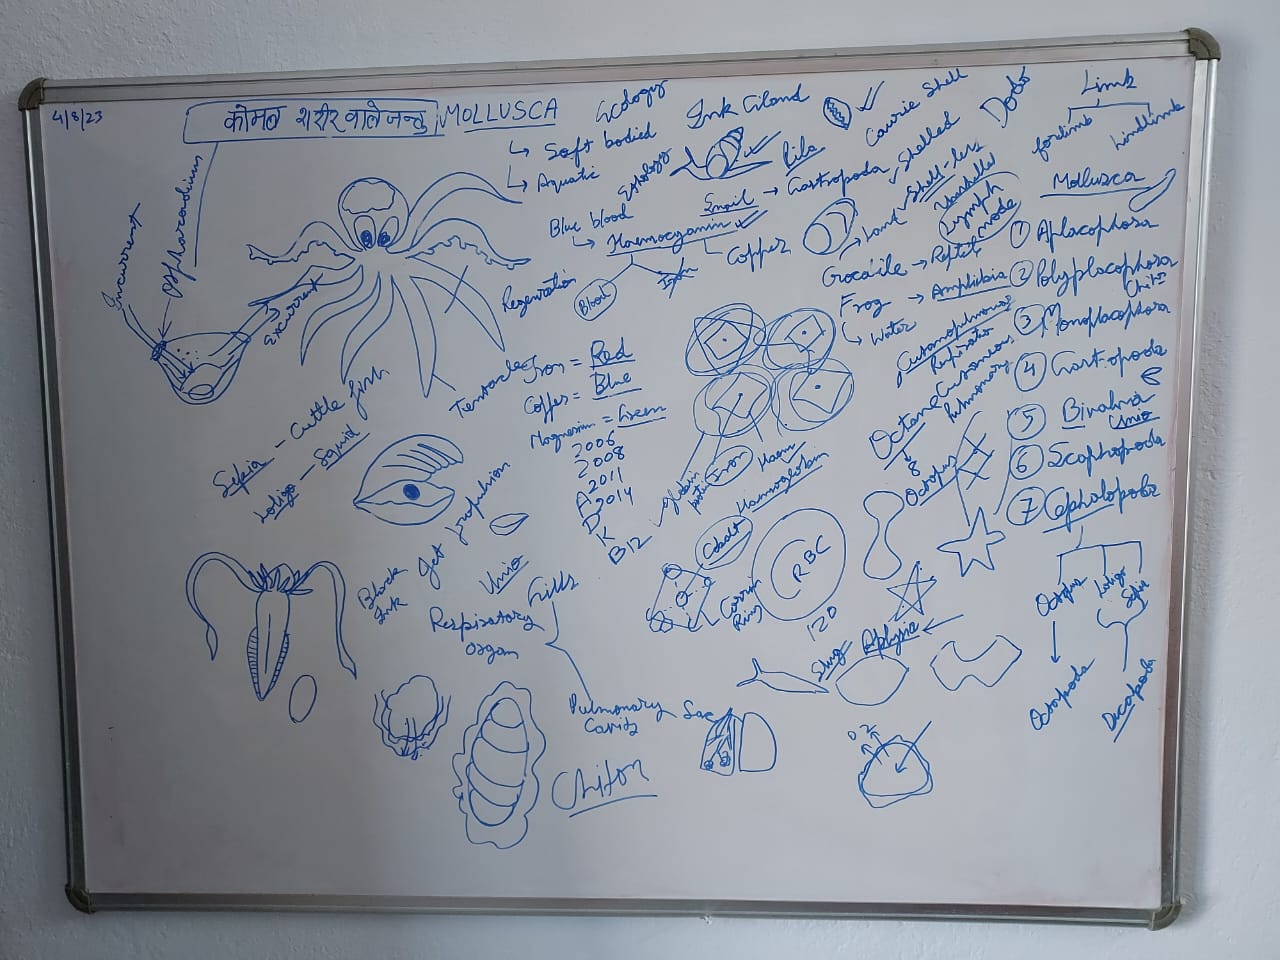 4/8/23
कोमल शरीर वाले जन्तु
MOLLUSCA
↳ Soft bodied
↳ Aquatic
Ecology
Ethology
Ink Gland
Cowrie Shell
Dodo
Limb
forlimb
hindlimb
Incurrent
Osphraedium
Excurrent
Blue blood
↳ Haemocyanin
Blood
Copper
Regenration
Snail → Gastropoda
Pila
Shelled
Shell-less
Land
Lymph
node
Crocodile → Reptile
Frog → Amphibia
↳ Water
Cutaneous
Pulmonary
Respiration
Mollusca
① Aplacophora
② Polyplacophora
③ Monoplacophora
④ Gastropoda
⑤ Bivalvia
Unio
⑥ Scaphopoda
⑦ Cephalopoda
Octopus
Loligo
Sepia
Octopoda
Decapoda
Tentacle
Iron = Red
Copper = Blue
Magnesium = Green
2006
2008
2011
2014
A
D
K
B12
Sepia - Cuttle fish
Loligo - Squid
Jet propulsion
Black
Ink
Unio
Respiratory
organ
Gills
Pulmonary
Cavity
Sac
globin
Iron
Haem
Haemoglobin
Cobalt
Corrin
Ring
RBC
120
Octane
8
Octopus
Slug
Aplysia
O2
Chiton